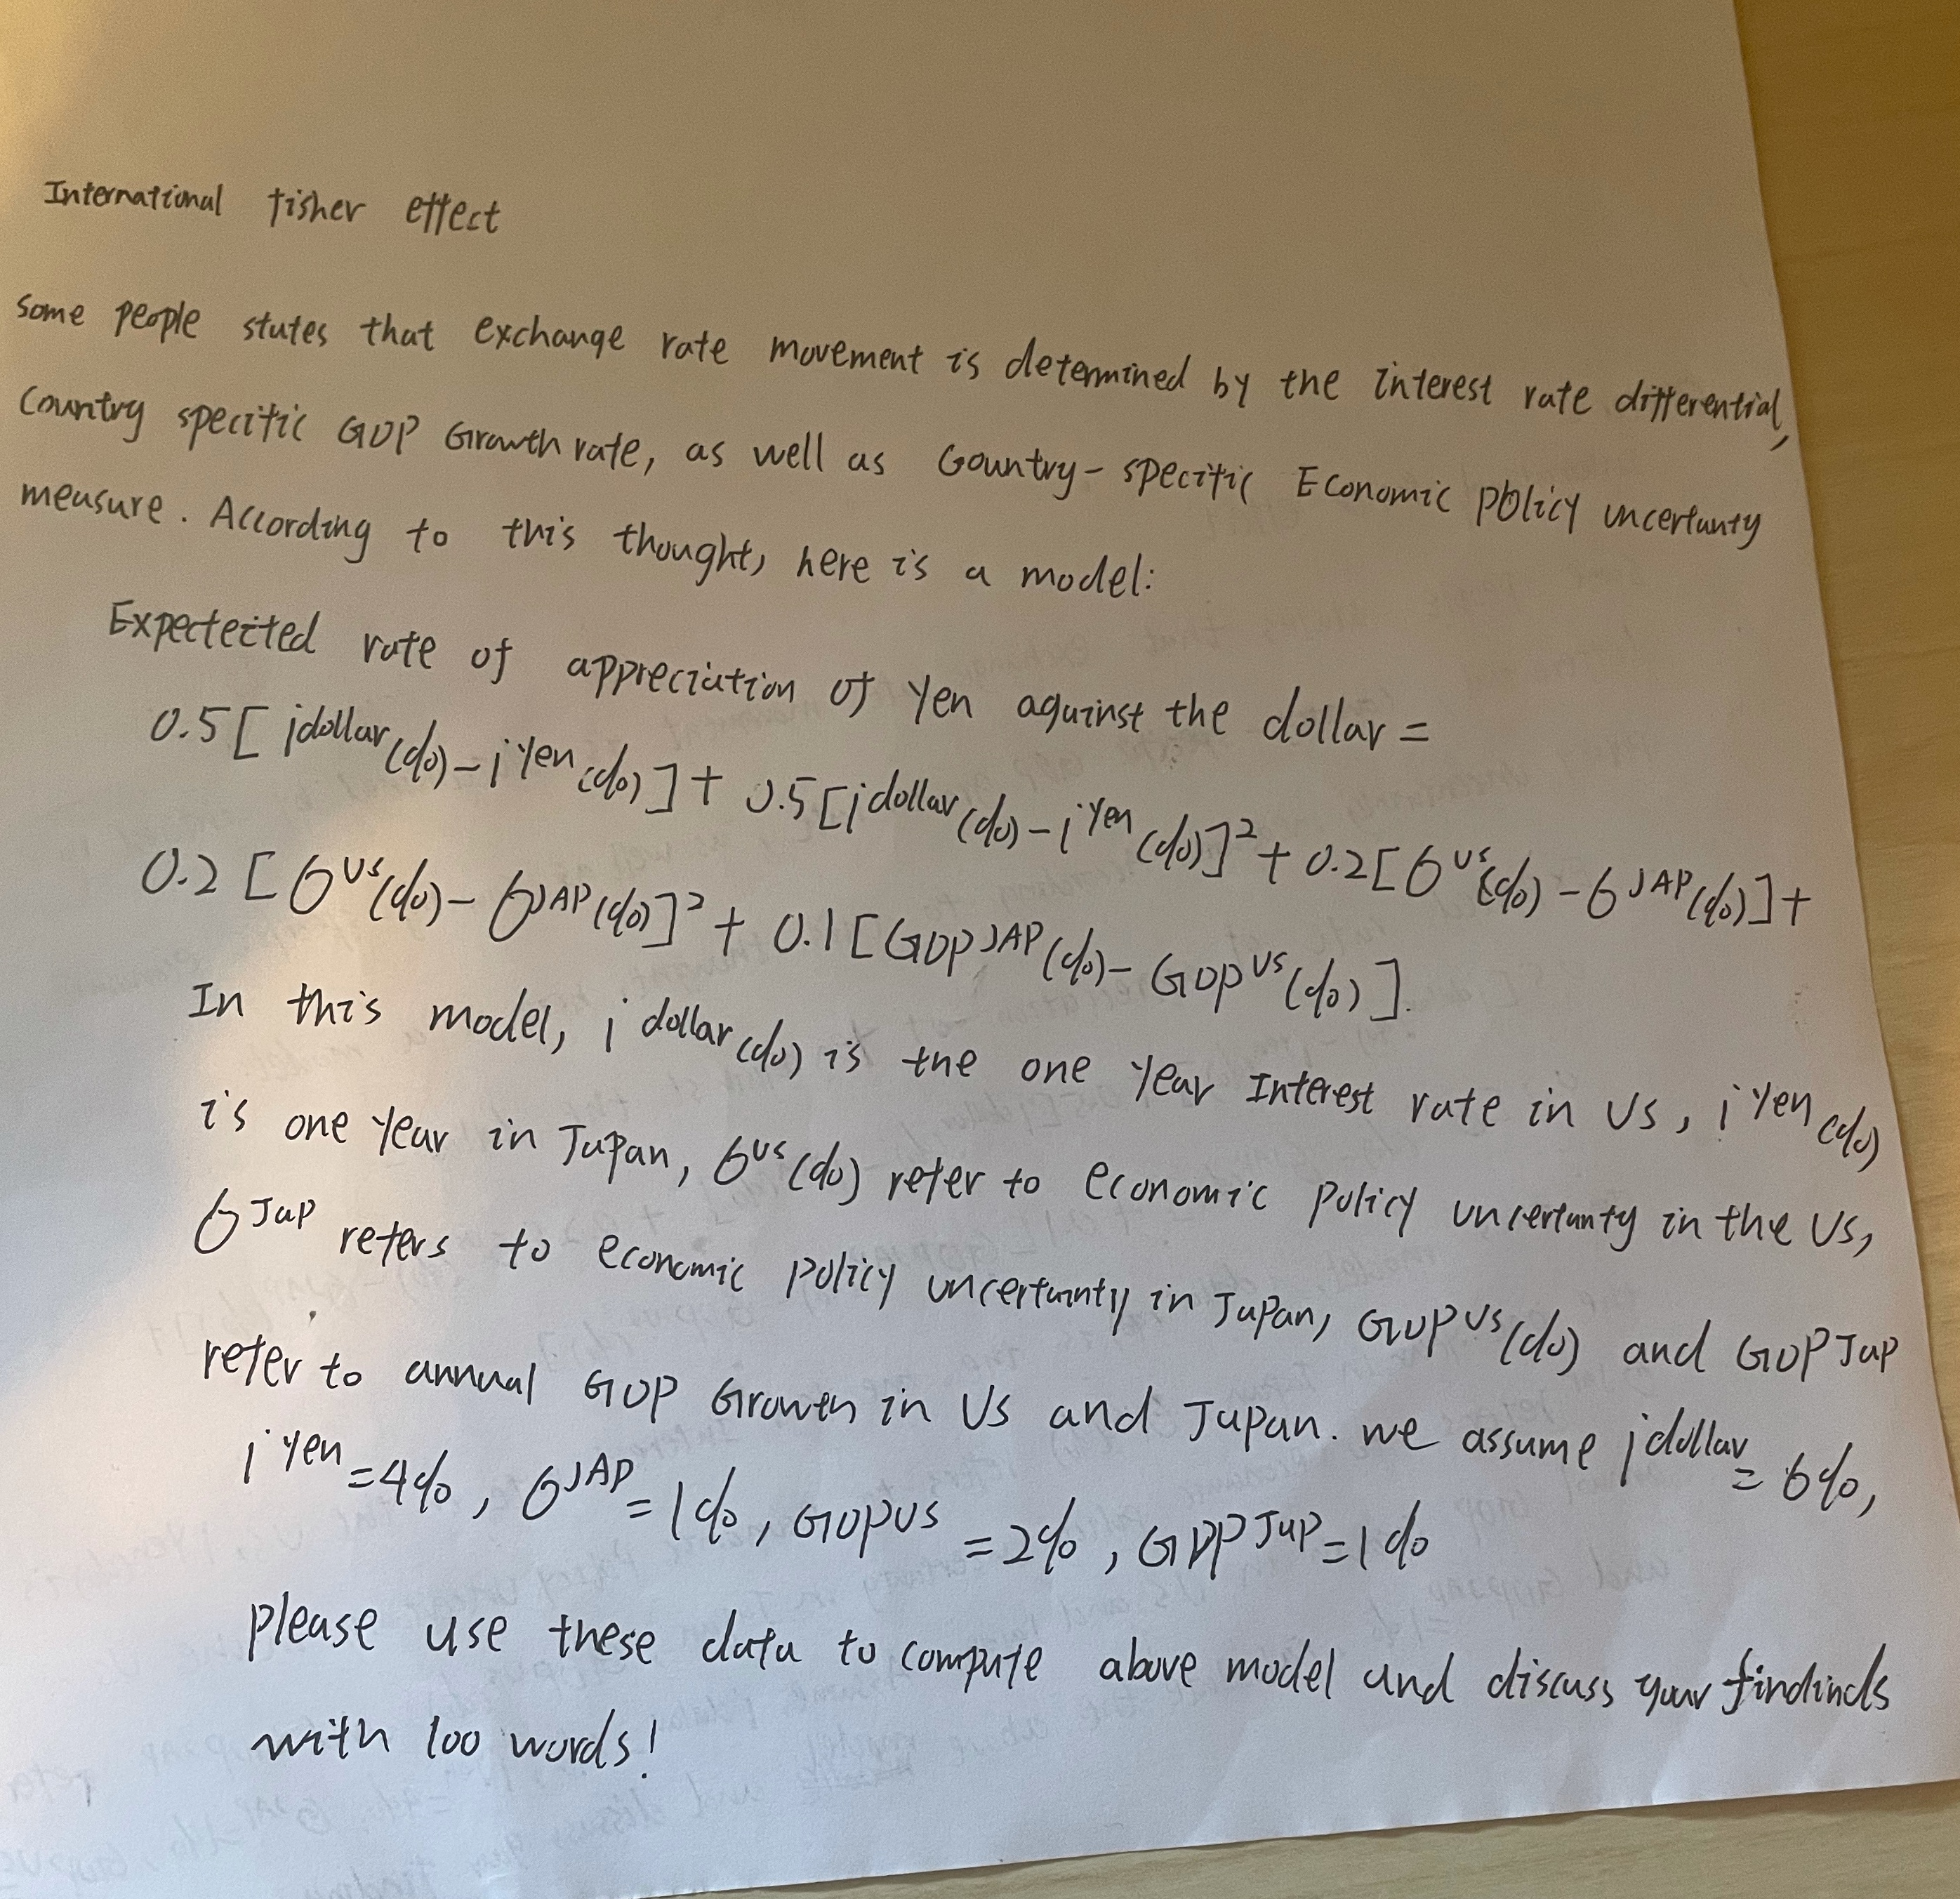 International fisher effect
Some people stutes that exchange rate movement is determined by the interest rate differential,
Country specific GDP Growth rate, as well as Country-specific Economic policy uncertunty
measure. According to this thought, here is a model:
Expecteited rate of appreciation of Yen against the dollar =
0.5[i^dollar(%)-i^Yen(%)]+0.5[i^dollar(%)-i^Yen(%)]²+0.2[σ^US(%)-σ^JAP(%)]+
0.2[σ^US(%)-σ^JAP(%)]²+0.1[GDP^JAP(%)-GDP^US(%)].
In this model, i^dollar(%) is the one Year Interest rate in US, i^Yen(%)
is one Year in Japan, σ^US(%) refer to economic policy uncertunty in the US,
σ^Jap refers to economic policy uncertuinty in Japan, GDP^US(%) and GDP^Jap
refer to annual GDP Growth in US and Japan. we assume i^dollar=6%,
i^Yen=4%, σ^JAP=1%, GDP^US=2%, GDP^Jap=1%
please use these data to compute above model and discuss your findinds
with 100 words!